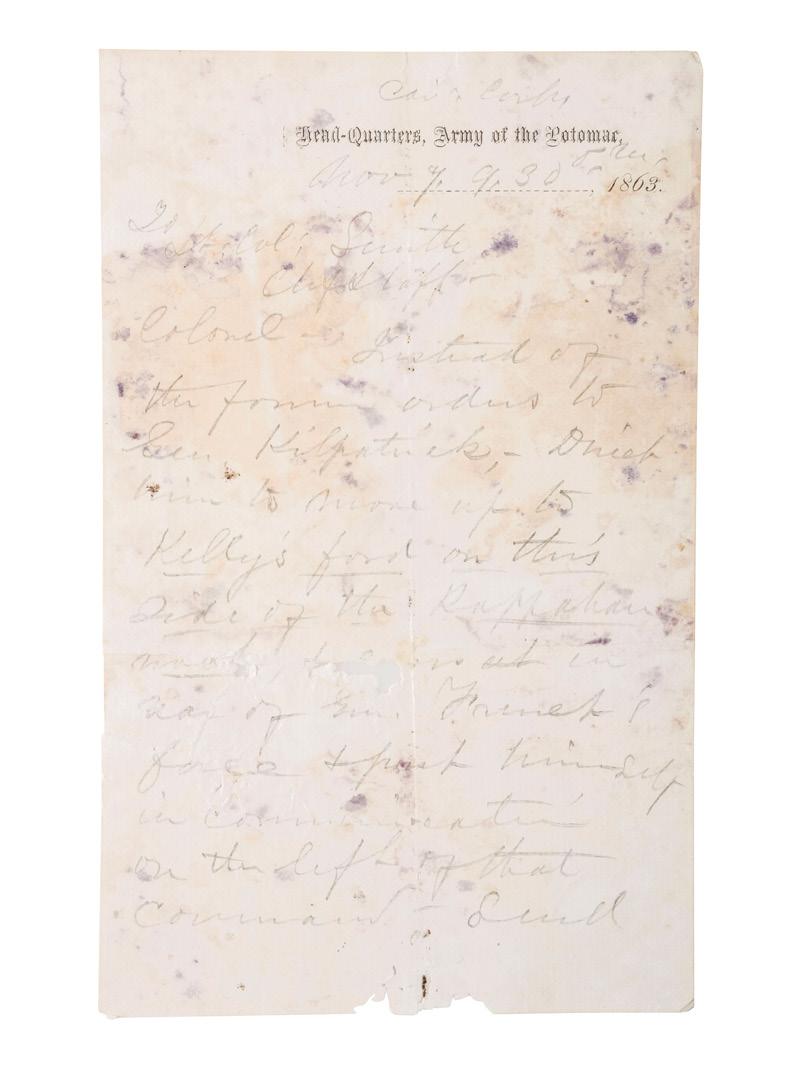 Cav. Corps
Head-Quarters, Army of the Potomac,
Nov 7, 9.30 1863.
To
Lt. Col. Smith
Chf Staff
Colonel - Instead of
the former orders to
Gen. Kilpatrick, - Direct
him to move up to
Kelly's ford on this
side of the Rappahan
nock, in
of Gen. French's
force & post himself
in communication
on the left of that
command - Send